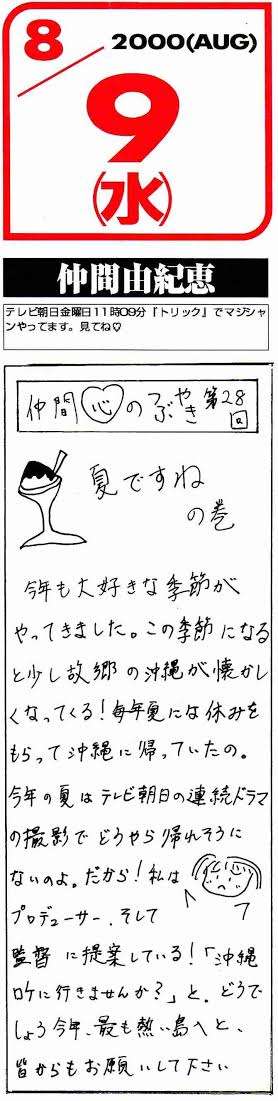 8
2000(AUG)
9
(水)
仲間由紀恵
テレビ朝日金曜日11時09分『トリック』でマジシャ
ンやってます。見てね♡
仲間心のつぶやき第28回
夏ですね
の巻
今年も大好きな季節が
やってきました。この季節になる
と少し故郷の沖縄が懐かし
くなってくる!毎年夏には休みを
もらって沖縄に帰っていたの。
今年の夏はテレビ朝日の連続ドラマ
の撮影でどうやら帰れそうに
ないのよ。だから!私は
プロデューサー、そして
監督に提案している!「沖縄
ロケに行きませんか?」と。どうで
しょう今年、最も熱い島へと、
皆からもお願いして下さい